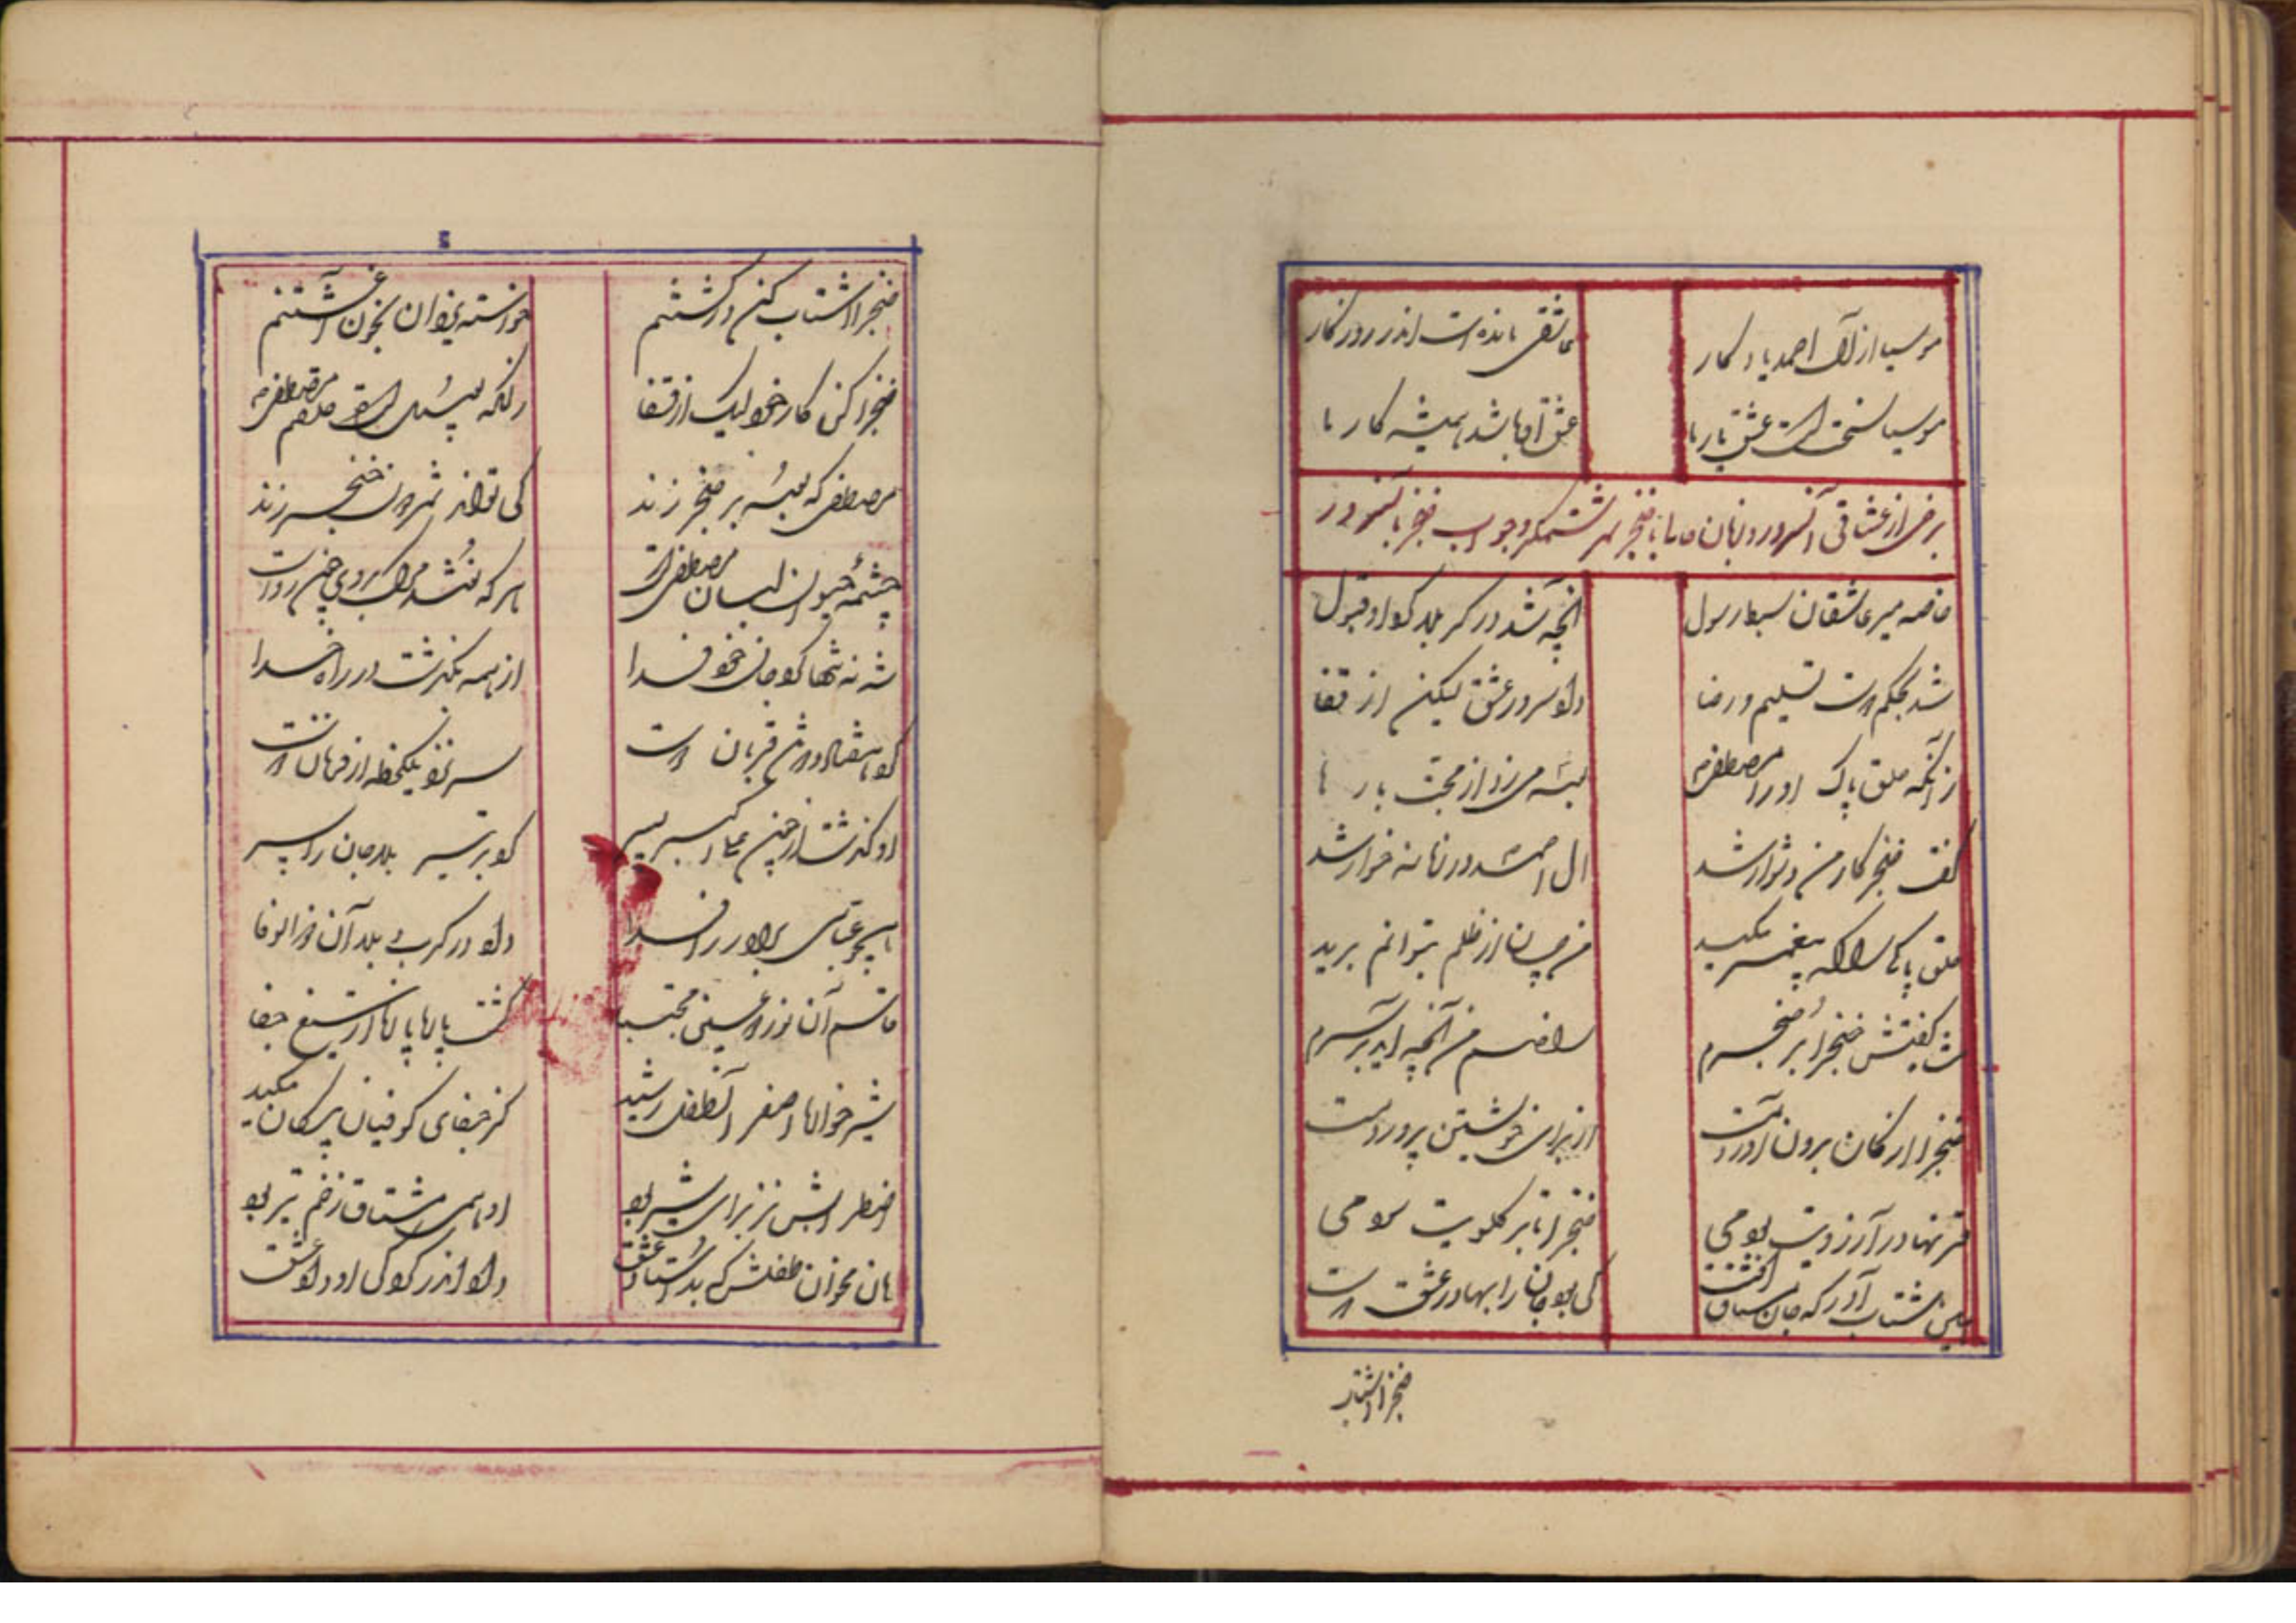 موسیا از آل احمد یادگار
عاشقی مانده است اندر روزگار
موسیا سخت است عشق یار ما
عشق او باشد همیشه کار ما
برخی از عشاقی آنسرور و زبان حال با خنجر شمر ستمگر و جواب خنجر بآنسرور
خاصه میر عاشقان سبط رسول
آنچه شد در کربلا کرد او قبول
شد بحکم دوست تسلیم و رضا
داد سر در عشق لیکن از قفا
زآنکه حلق پاک او را مصطفی
بوسه میزد از محبت بارها
گفت خنجر کار من دشوار شد
آل احمد در زمانه خوار شد
حلق پاکی را که پیغمبر مکید
من چسان از ظلم بتوانم برید
شاه گفتش خنجرا بر حنجرم
راضیم من آنچه آید بر سرم
خنجرا از کان برون آوردت
از برای خویشتن پروردمت
قرنها در آرزویت بودمی
خنجرا تا بر گلویت سودمی
شتاب آور که جان مشتاق
کی بود جان را بها در عشق دوست
خنجرا شتاب
خنجرا شتاب کن در کشتنم
خواسته یزدان بخون آغشتنم
خنجرا کن کار خود لیک از قفا
زانکه بوسیده است حلقم مصطفی
مصطفی که بوسه بر حنجر زند
کی تواند شمر دون خنجر زند
چشمه حیوان لبان مصطفی است
هر که نوشد مرگ بر وی چون رواست
شه نه تنها کرد جان خود فدا
از همه بگذشت در راه خدا
کو بهفتاد و دو قربان
سر نزد یکلحظه از فرمان دوست
او گذشت از چون علی اکبر پسر
کو بر تیر بلا جان را سپر
همچو عباسی برادر را فدا
داد در کرب و بلا آن ذوالوفا
قاسم آن نور دو عین مجتبی
گشت پامال از تیغ جفا
شیرخواره اصغر آنطفل رشید
کز جفای کوفیان پیکان مکید
اضطرابش نز برای شیر بود
او همی مشتاق زخم تیر بود
هان مخوان طفلش که بد استاد عشق
داد اندر کودکی او داد عشق